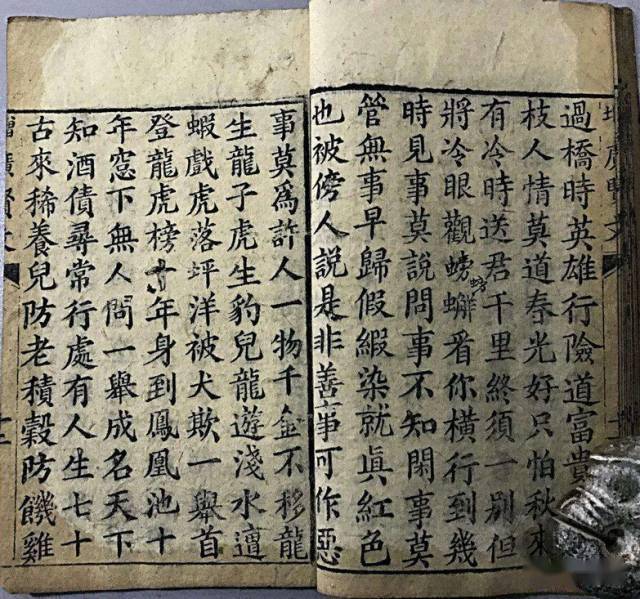 增廣賢文
過橋時英雄行險道富貴
枝人情莫道春光好只怕秋來
有冷時送君千里終須一別但
將冷眼觀螃蠏看你橫行到幾
時見事莫說問事不知閑事莫
管無事早歸假緞染就眞紅色
也被傍人說是非善事可作惡
事莫爲許人一物千金不移龍
生龍子虎生豹兒龍遊淺水遭
蝦戲虎落坪洋被犬欺一舉首
登龍虎榜十年身到鳳凰池十
年窓下無人問一舉成名天下
知酒債尋常行處有人生七十
古來稀養兒防老積穀防饑雞
增廣賢文